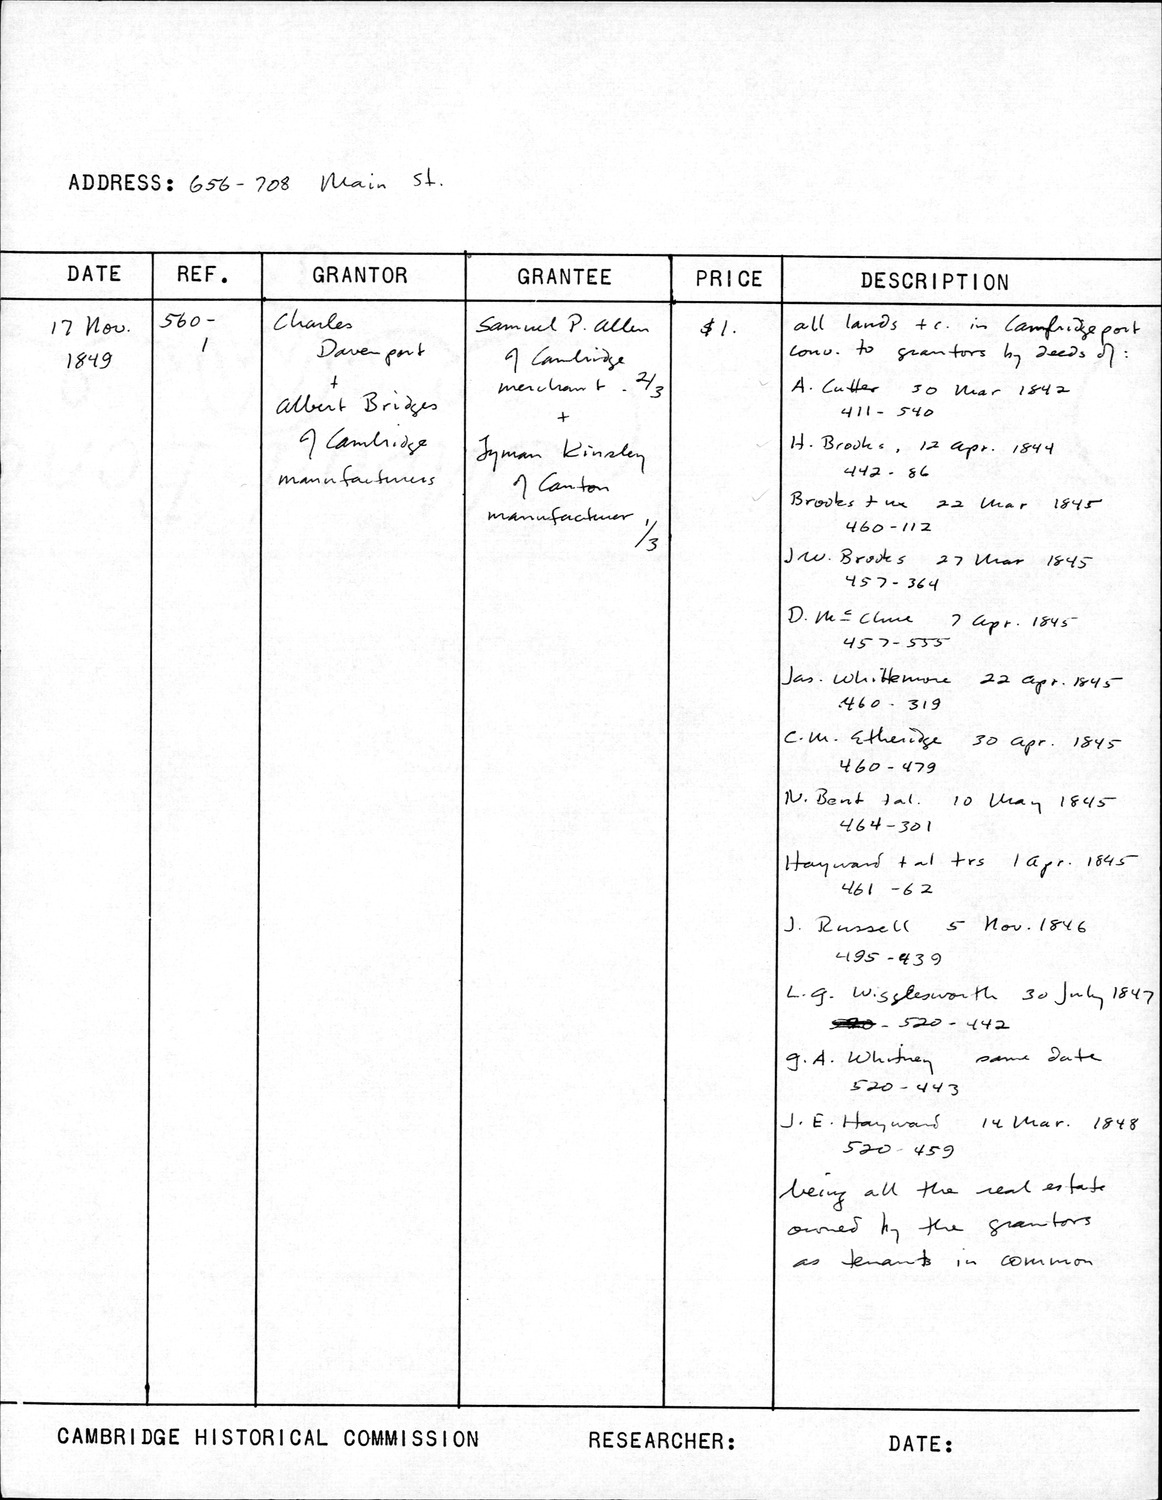 ADDRESS: 656-708 Main St.
DATE REF. GRANTOR GRANTEE PRICE DESCRIPTION
17 Nov.
1849
560-
1
Charles
Davenport
+
Albert Bridges
of Cambridge
manufacturers
Samuel P. Allen
of Cambridge
merchant. 2/3
+
Lyman Kinsley
of Canton
manufacturer,
1/3
$1.
all lands +c. in Cambridgeport
conv. to grantors by deeds of:
A. Cutter 30 Mar 1842
411-540
H. Brooks, 12 Apr. 1844
442-86
Brooks + ux 22 Mar 1845
460-112
J.W. Brooks 27 Mar 1845
457-364
D. McClure 7 Apr. 1845
457-555
Jas. Whittemore 22 Apr. 1845
460-319
C.M. Etheridge 30 Apr. 1845
460-479
N. Bent +al. 10 May 1845
464-301
Hayward + al trs 1 Apr. 1845
461-62
J. Russell 5 Nov. 1846
495-439
L.G. Wigglesworth 30 July 1847
- 520-442
G.A. Whitney same date
520-443
J.E. Hayward 14 Mar. 1848
520-459
being all the real estate
owned by the grantors
as tenants in common
CAMBRIDGE HISTORICAL COMMISSION RESEARCHER: DATE: